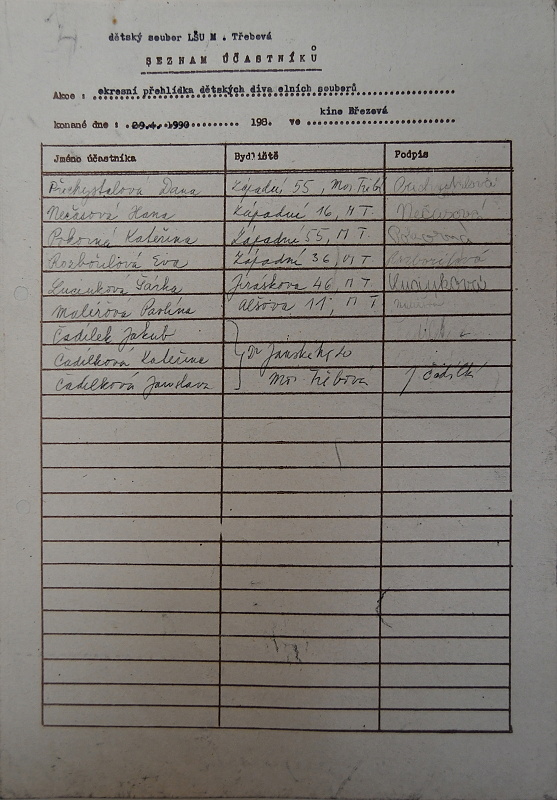 dětský soubor LŠU M . Třebová
SEZNAM ÚČASTNÍKŮ
Akce : okresní přehlídka dětských diva elních souborů
konané dne : 29.4. 1990 198. ve kino Březová
Jméno účastníka Bydliště Podpis
Přechystalová Dana Západní 55, Mor Třeb
Nečasová Hana Západní 16, M T. Nečasová
Pokorná Kateřina Západní 55, M T. Pokorná
Rozbořilová Eva Západní 36, M T. Rozbořilová
Lucuková Šárka Jiráskova 46, M T. Lucuková
Malířová Pavlína Alšova 11, M T.
Čadílek Jakub
Čadílková Kateřina Dr Janského
Čadílková Jaroslava Mor Třebová J Čadílk